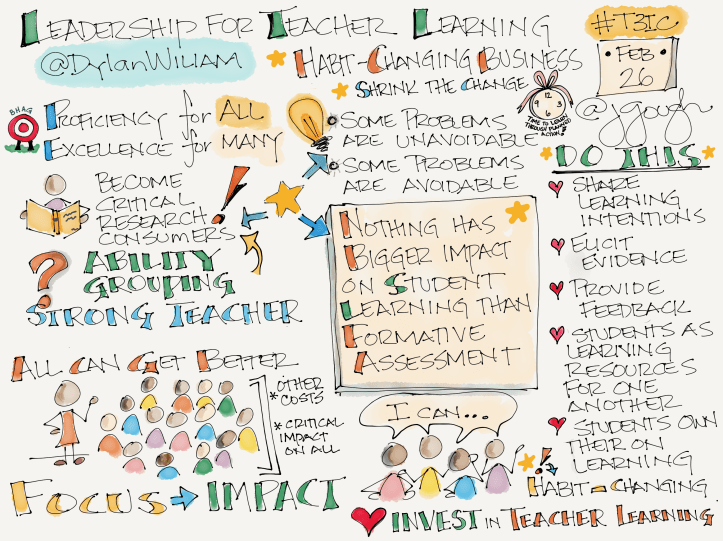 LEADERSHIP FOR TEACHER LEARNING
@DylanWiliam
HABIT-CHANGING BUSINESS
SHRINK THE CHANGE
#T3IC
FEB
26
@jgough
TIME TO LEARN
THROUGH PLANNED
ACTION!
BHAG
PROFICIENCY for ALL
EXCELLENCE for MANY
SOME PROBLEMS
ARE UNAVOIDABLE
SOME PROBLEMS
ARE AVOIDABLE
BECOME
CRITICAL
RESEARCH
CONSUMERS
!
? ABILITY
GROUPING
STRONG TEACHER
NOTHING HAS
BIGGER IMPACT
ON STUDENT
LEARNING THAN
FORMATIVE
ASSESSMENT
DO THIS
SHARE
LEARNING
INTENTIONS
ELICIT
EVIDENCE
PROVIDE
FEEDBACK
STUDENTS AS
LEARNING
RESOURCES
FOR ONE
ANOTHER
STUDENTS OWN
THEIR ON
LEARNING
ALL CAN GET BETTER
* OTHER
COSTS
* CRITICAL
IMPACT
ON ALL
FOCUS → IMPACT
I CAN...
! HABIT-CHANGING.
INVEST IN TEACHER LEARNING